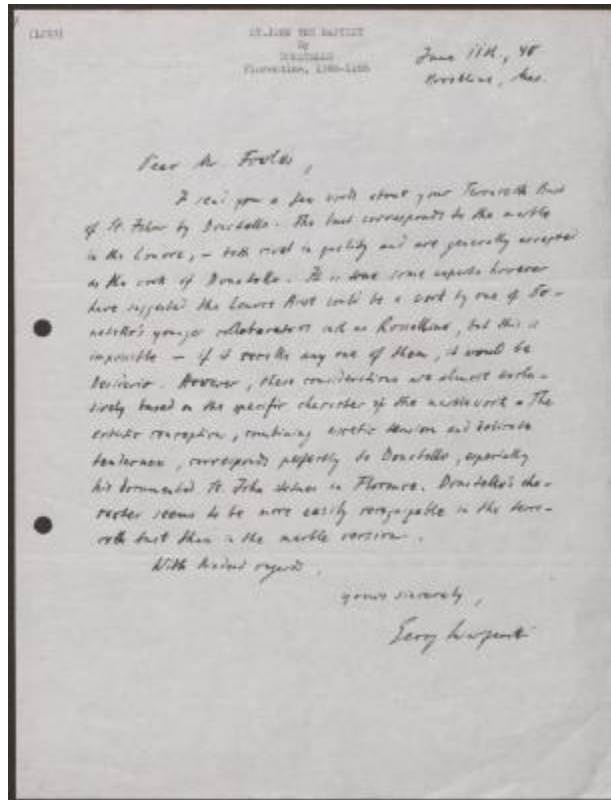 ST. JOHN THE BAPTIST
By
DONATELLO
Florentine, 1386-1466
June 11th, 48
Brookline, Mas.
Dear Mr. Fowles,
I send you a few words about your Terracotta Bust
of St. John by Donatello. The bust corresponds to the marble
in the Louvre, – both rival in quality and are generally accepted
as the work of Donatello. It is true some experts however
have suggested the Louvre Bust could be a work by one of Do-
natello's younger collaborators such as Rossellino, but this is
impossible – if it recalls any one of them, it would be
Desiderio. However, these considerations are almost exclu-
sively based on the specific character of the marblework. The
artistic conception, combining ascetic tension and delicate
tenderness, corresponds perfectly to Donatello, especially
his documented St. John statues in Florence. Donatello's cha-
racter seems to be more easily recognizable in the terra-
cotta bust than in the marble version.
With kindest regards,
yours sincerely,